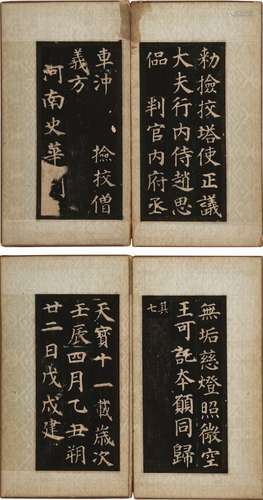 勑撿挍塔使正議
大夫行內侍趙思
偘 判官內府丞
車沖 撿挍僧
義方
河南史華
無垢慈燈照微空
王可託夲願同歸
其七
天寶十一載歲次
壬辰四月乙丑朔
廿二日戊戌建